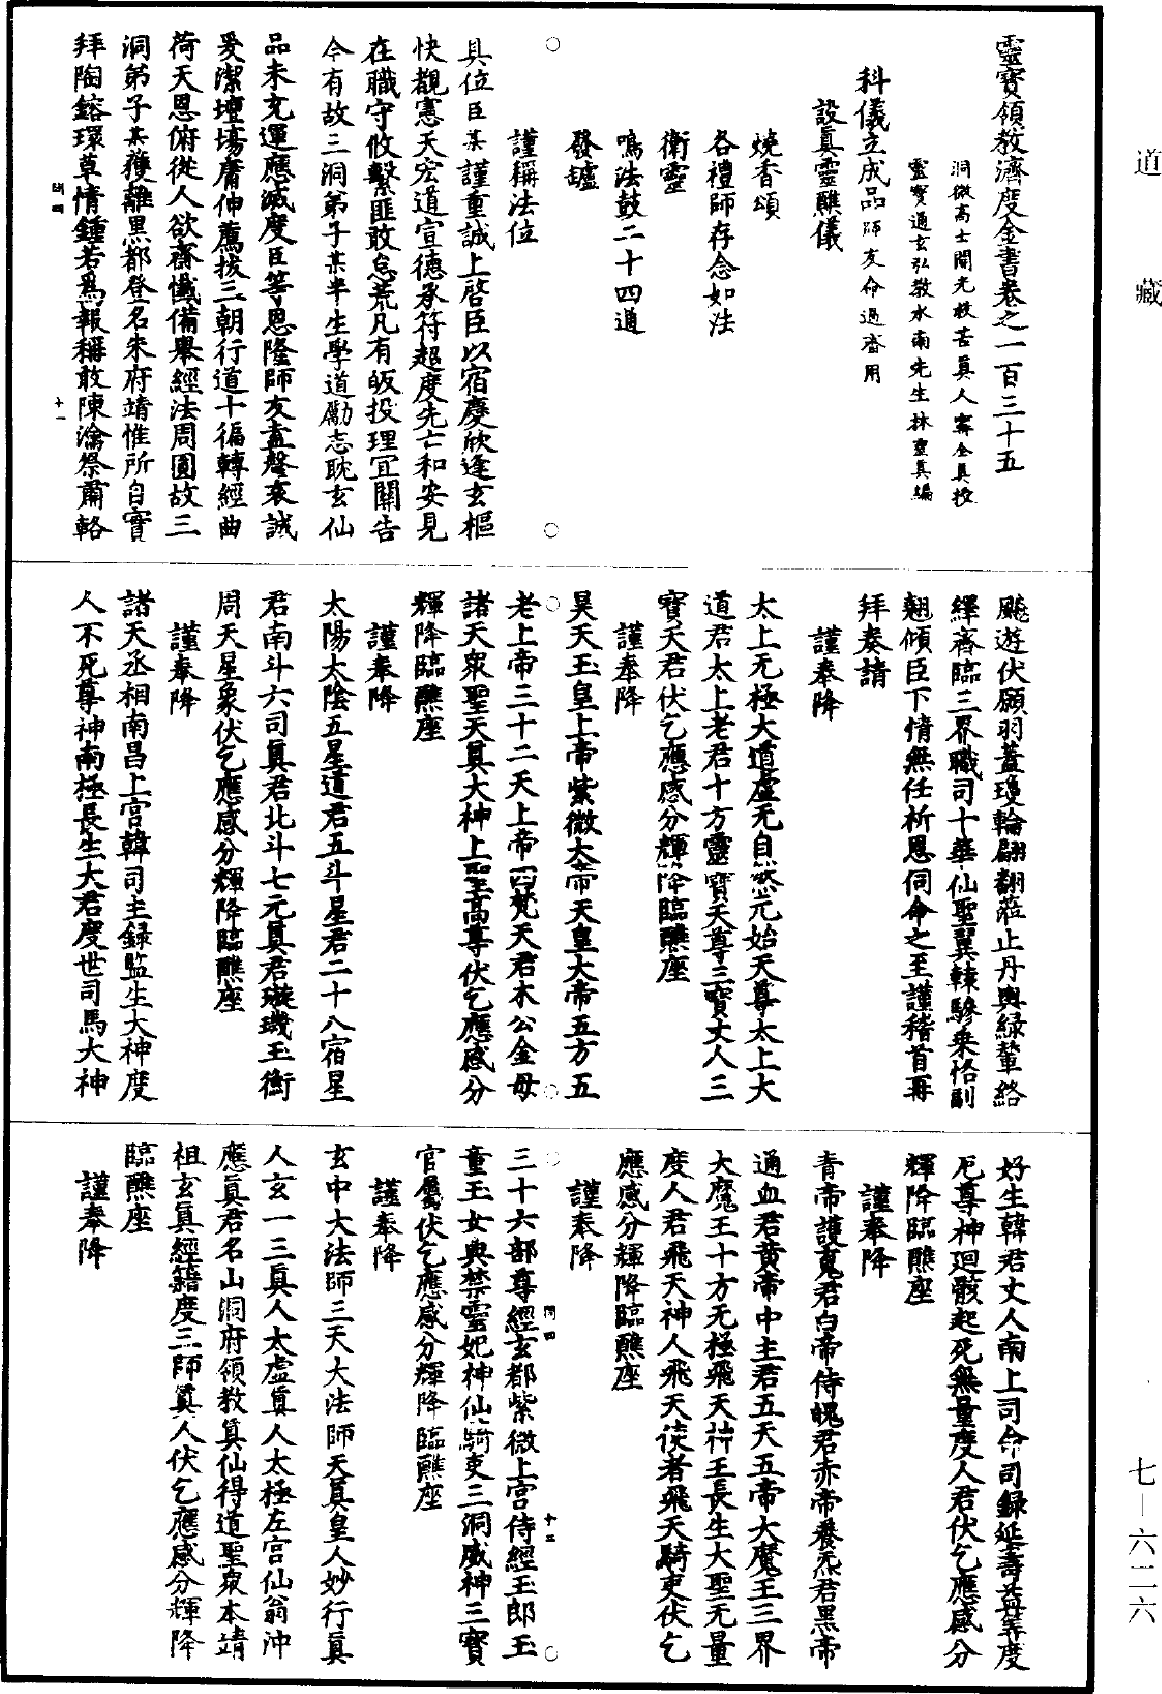 道藏
靈寶領教濟度金書卷之一百三十五
洞微高士開光救苦真人甯全真授
靈寶通玄弘教水南先生林靈真編
科儀立成品師友命過齋用
設真靈醮儀
燒香頌
各禮師存念如法
衛靈
鳴法鼓二十四通
發鑪
謹稱法位
具位臣某謹重誠上啓臣以宿慶欣逢玄樞
快覩憲天宏道宣德承符超度先亡和安見
在職守攸繫匪敢怠荒凡有皈投理宜關告
今有故三洞弟子某半生學道勵志耽玄仙
品未充運應滅度臣等恩隆師友盍罄哀誠
爰潔壇場庸伸薦拔三朝行道十徧轉經曲
荷天恩俯從人欲齋懺備舉經法周圓故三
洞弟子某獲離黑都登名朱府靖惟所自實
拜陶鎔環草情鍾若為報稱敢陳瀹祭肅輅
開四 十一
飈遊伏願羽蓋瓊輪翩翻蒞止丹輿綠輦絡
繹齊臨三界職司十華仙聖翼轅驂乘恪副
翹傾臣下情無任祈恩伺命之至謹稽首再
拜奏請
謹奉降
太上无極大道虛无自然元始天尊太上大
道君太上老君十方靈寶天尊三寶丈人三
寶天君伏乞應感分輝降臨醮座
謹奉降
昊天玉皇上帝紫微大帝天皇大帝五方五
老上帝三十二天上帝四梵天君木公金母
諸天眾聖天真大神上聖高尊伏乞應感分
輝降臨醮座
謹奉降
太陽太陰五星道君五斗星君二十八宿星
君南斗六司真君北斗七元真君璇璣玉衡
周天星象伏乞應感分輝降臨醮座
謹奉降
諸天丞相南昌上宮韓司主錄監生大神度
人不死尊神南極長生大君度世司馬大神
好生韓君丈人南上司命司錄延壽益筭度
厄尊神迴骸起死無量度人君伏乞應感分
輝降臨醮座
謹奉降
青帝護䰟君白帝侍魄君赤帝養炁君黑帝
通血君黃帝中主君五天五帝大魔王三界
大魔王十方无極飛天神王長生大聖无量
度人君飛天神人飛天使者飛天騎吏伏乞
應感分輝降臨醮座
謹奉降
開四 十二
三十六部尊經玄都紫微上宮侍經玉郎玉
童玉女典禁靈妃神仙騎吏三洞威神三寶
官屬伏乞應感分輝降臨醮座
謹奉降
玄中大法師三天大法師天真皇人妙行真
人玄一三真人太虛真人太極左宮仙翁沖
應真君名山洞府領教真仙得道聖眾本靖
祖玄真經籍度三師真人伏乞應感分輝降
臨醮座
謹奉降
七—六二六